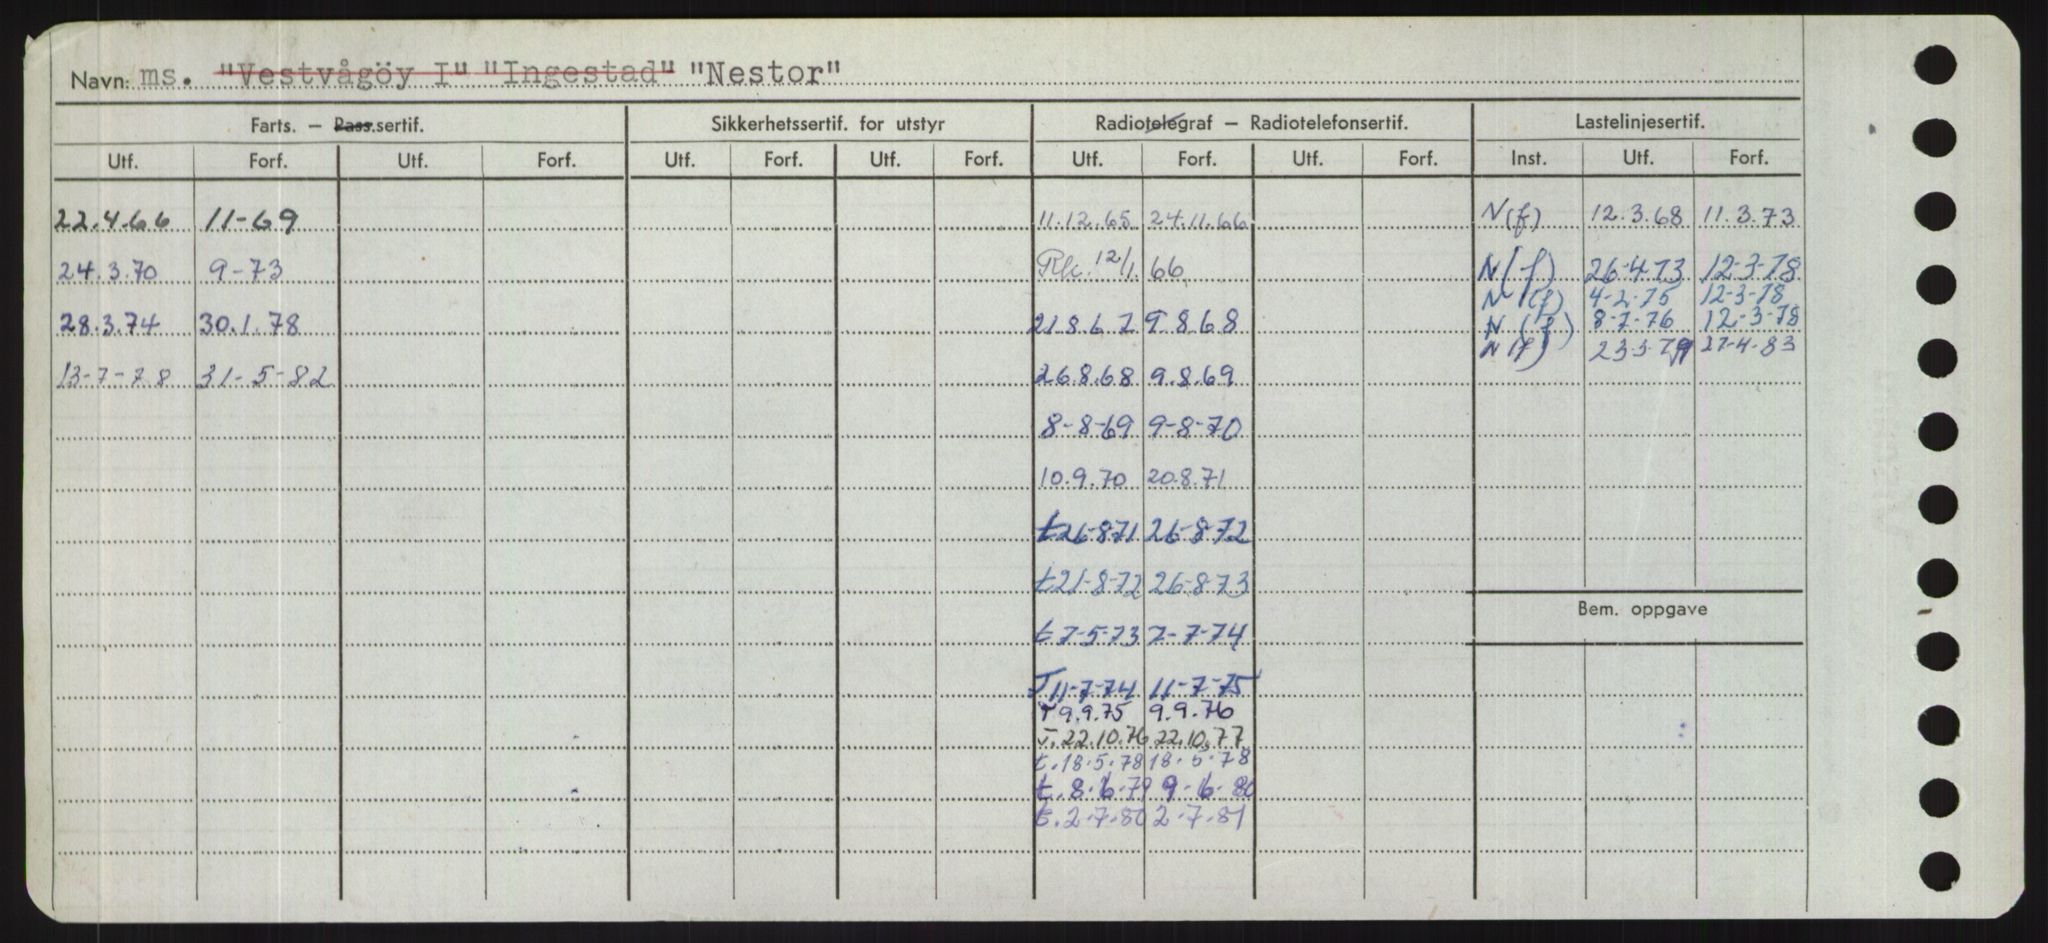 Navn: ms. "Vestvågöy I" "Ingestad" "Nestor"
Farts. — Pass.sertif. Sikkerhetssertif. for utstyr Radiotelegraf — Radiotelefonsertif. Lastelinjesertif.
Utf. Forf. Utf. Forf. Utf. Forf. Utf. Forf. Utf. Forf. Utf. Forf. Inst. Utf. Forf.
22.4.66 11-69 11.12.65 24.11.66 N(f) 12.3.68 11.3.73
24.3.70 9-73 12/1.66 N(f) 26-4-73 12-3-78
N(f) 4-2-75 12-3-78
28.3.74 30.1.78 21.8.67 9.8.68 N(f) 8-7-76 12-3-78
N(f) 23-3-79 27-4-83
13-7-78 31-5-82 26.8.68 9.8.69
8-8-69 9-8-70
10.9.70 20.8.71
t 26-8-71 26-8-72
t 21-8-72 26-8-73
Bem. oppgave
t 7-5-73 7-7-74
T 11-7-74 11-7-75
T 9.9.75 9.9.76
T. 22.10.76 22.10.77
t. 18-5-78 18-5-78
t. 8-6-79 9-6-80
t. 2-7-80 2-7-81